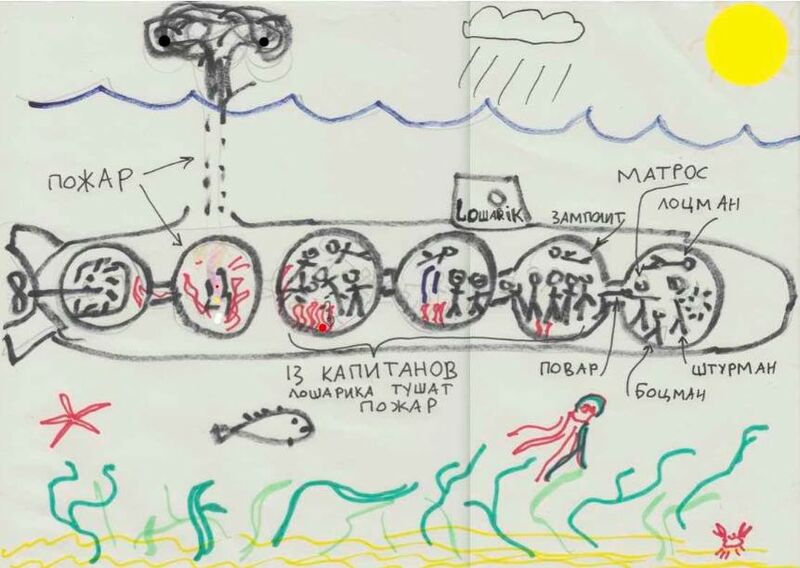 ПОЖАР
LОШАRiK
МАТРОС
ЛОЦМАН
ЗАМПОЛИТ
13 КАПИТАНОВ
ЛОШАРИКА ТУШАТ
ПОЖАР
ПОВАР
БОЦМАН
ШТУРМАН